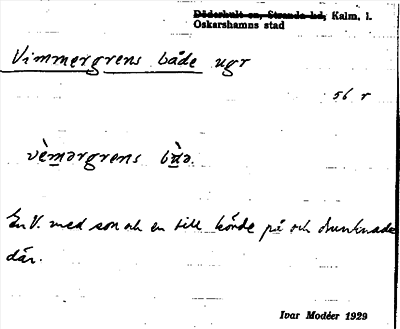 Döderhult sn, Stranda hd, Kalm. l.
Oskarshamns stad
Vimmergrens både ugr
56 r
vèmərgrens
En V. med son och en till körde på och drunknade
där.
Ivar Modéer 1929